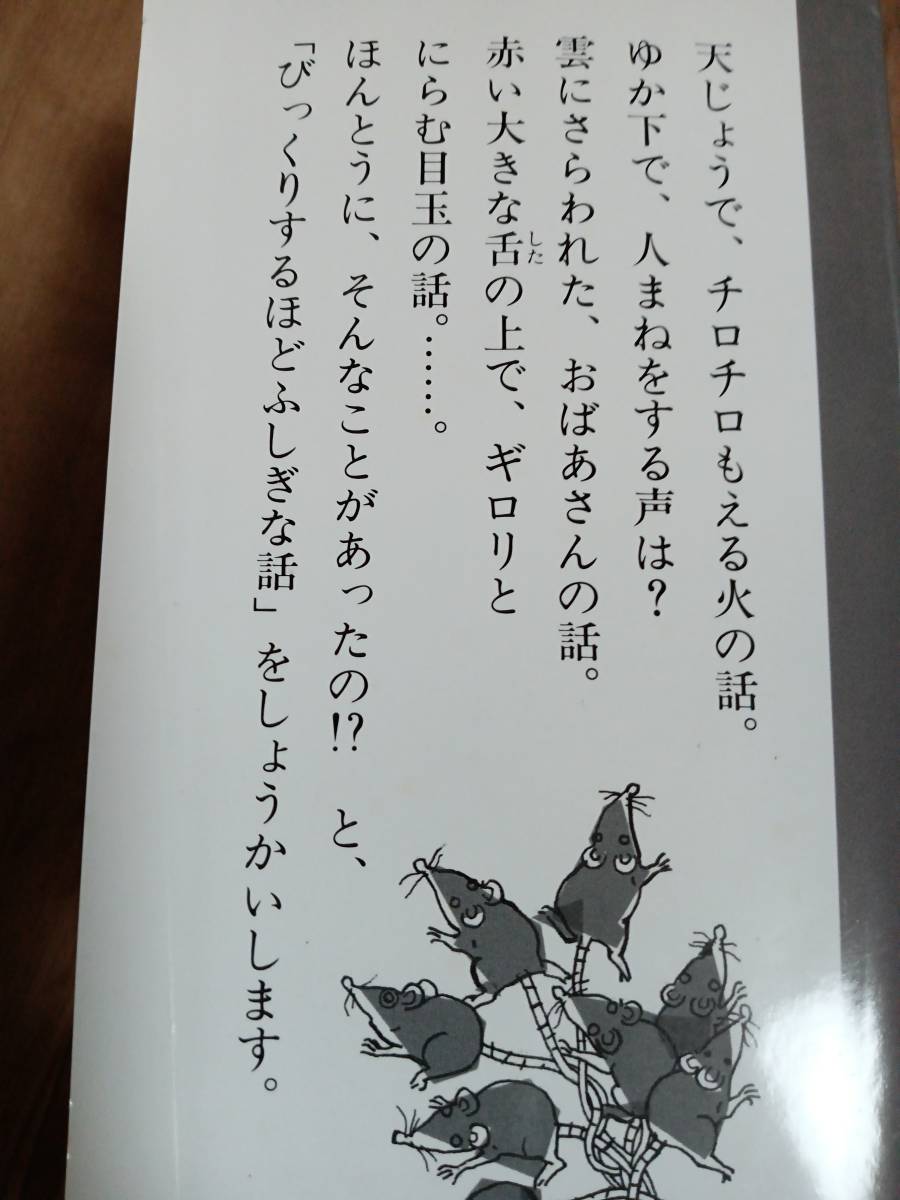 天じょうで、チロチロもえる火の話。
ゆか下で、人まねをする声は？
雲にさらわれた、おばあさんの話。
赤い大きな舌の上で、ギロリと
した
にらむ目玉の話。……。
ほんとうに、そんなことがあったの!?　と、
「びっくりするほどふしぎな話」をしょうかいします。